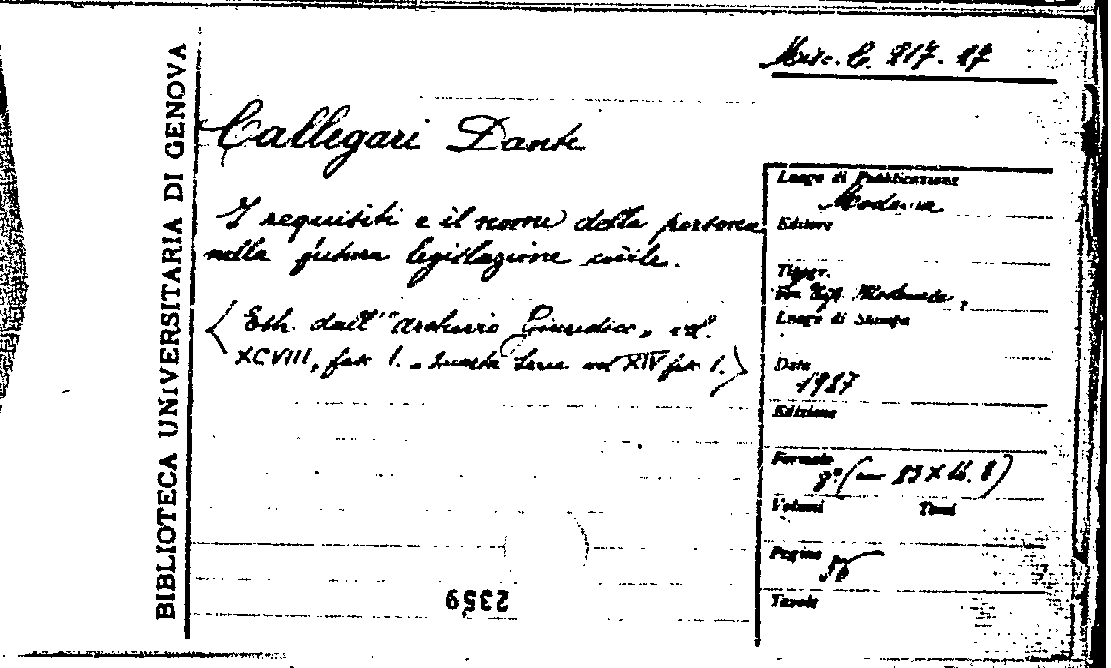 BIBLIOTECA UNIVERSITARIA DI GENOVA
Misc. C. 217. 27
Callegari Dante
I requisiti e il nome della persona
nella futura legislazione civile.
(Estr. dall' "Archivio Giuridico", vol.
XCVIII, fasc 1. Quarta Serie vol XIV fasc 1.)
Luogo di Pubblicazione
Modena
Editore
Tipogr.
Tip. Modenese,
Luogo di Stampa
Data
1937
Edizione
Formato
8° (cm 23 X 16. 8)
Volumi Tomi
Pagine
Tavole
2359